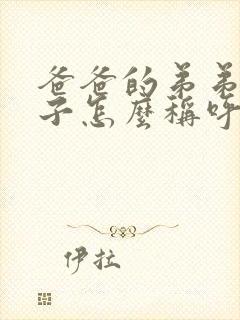 爸爸的弟弟
子怎麼稱呼
伊拉